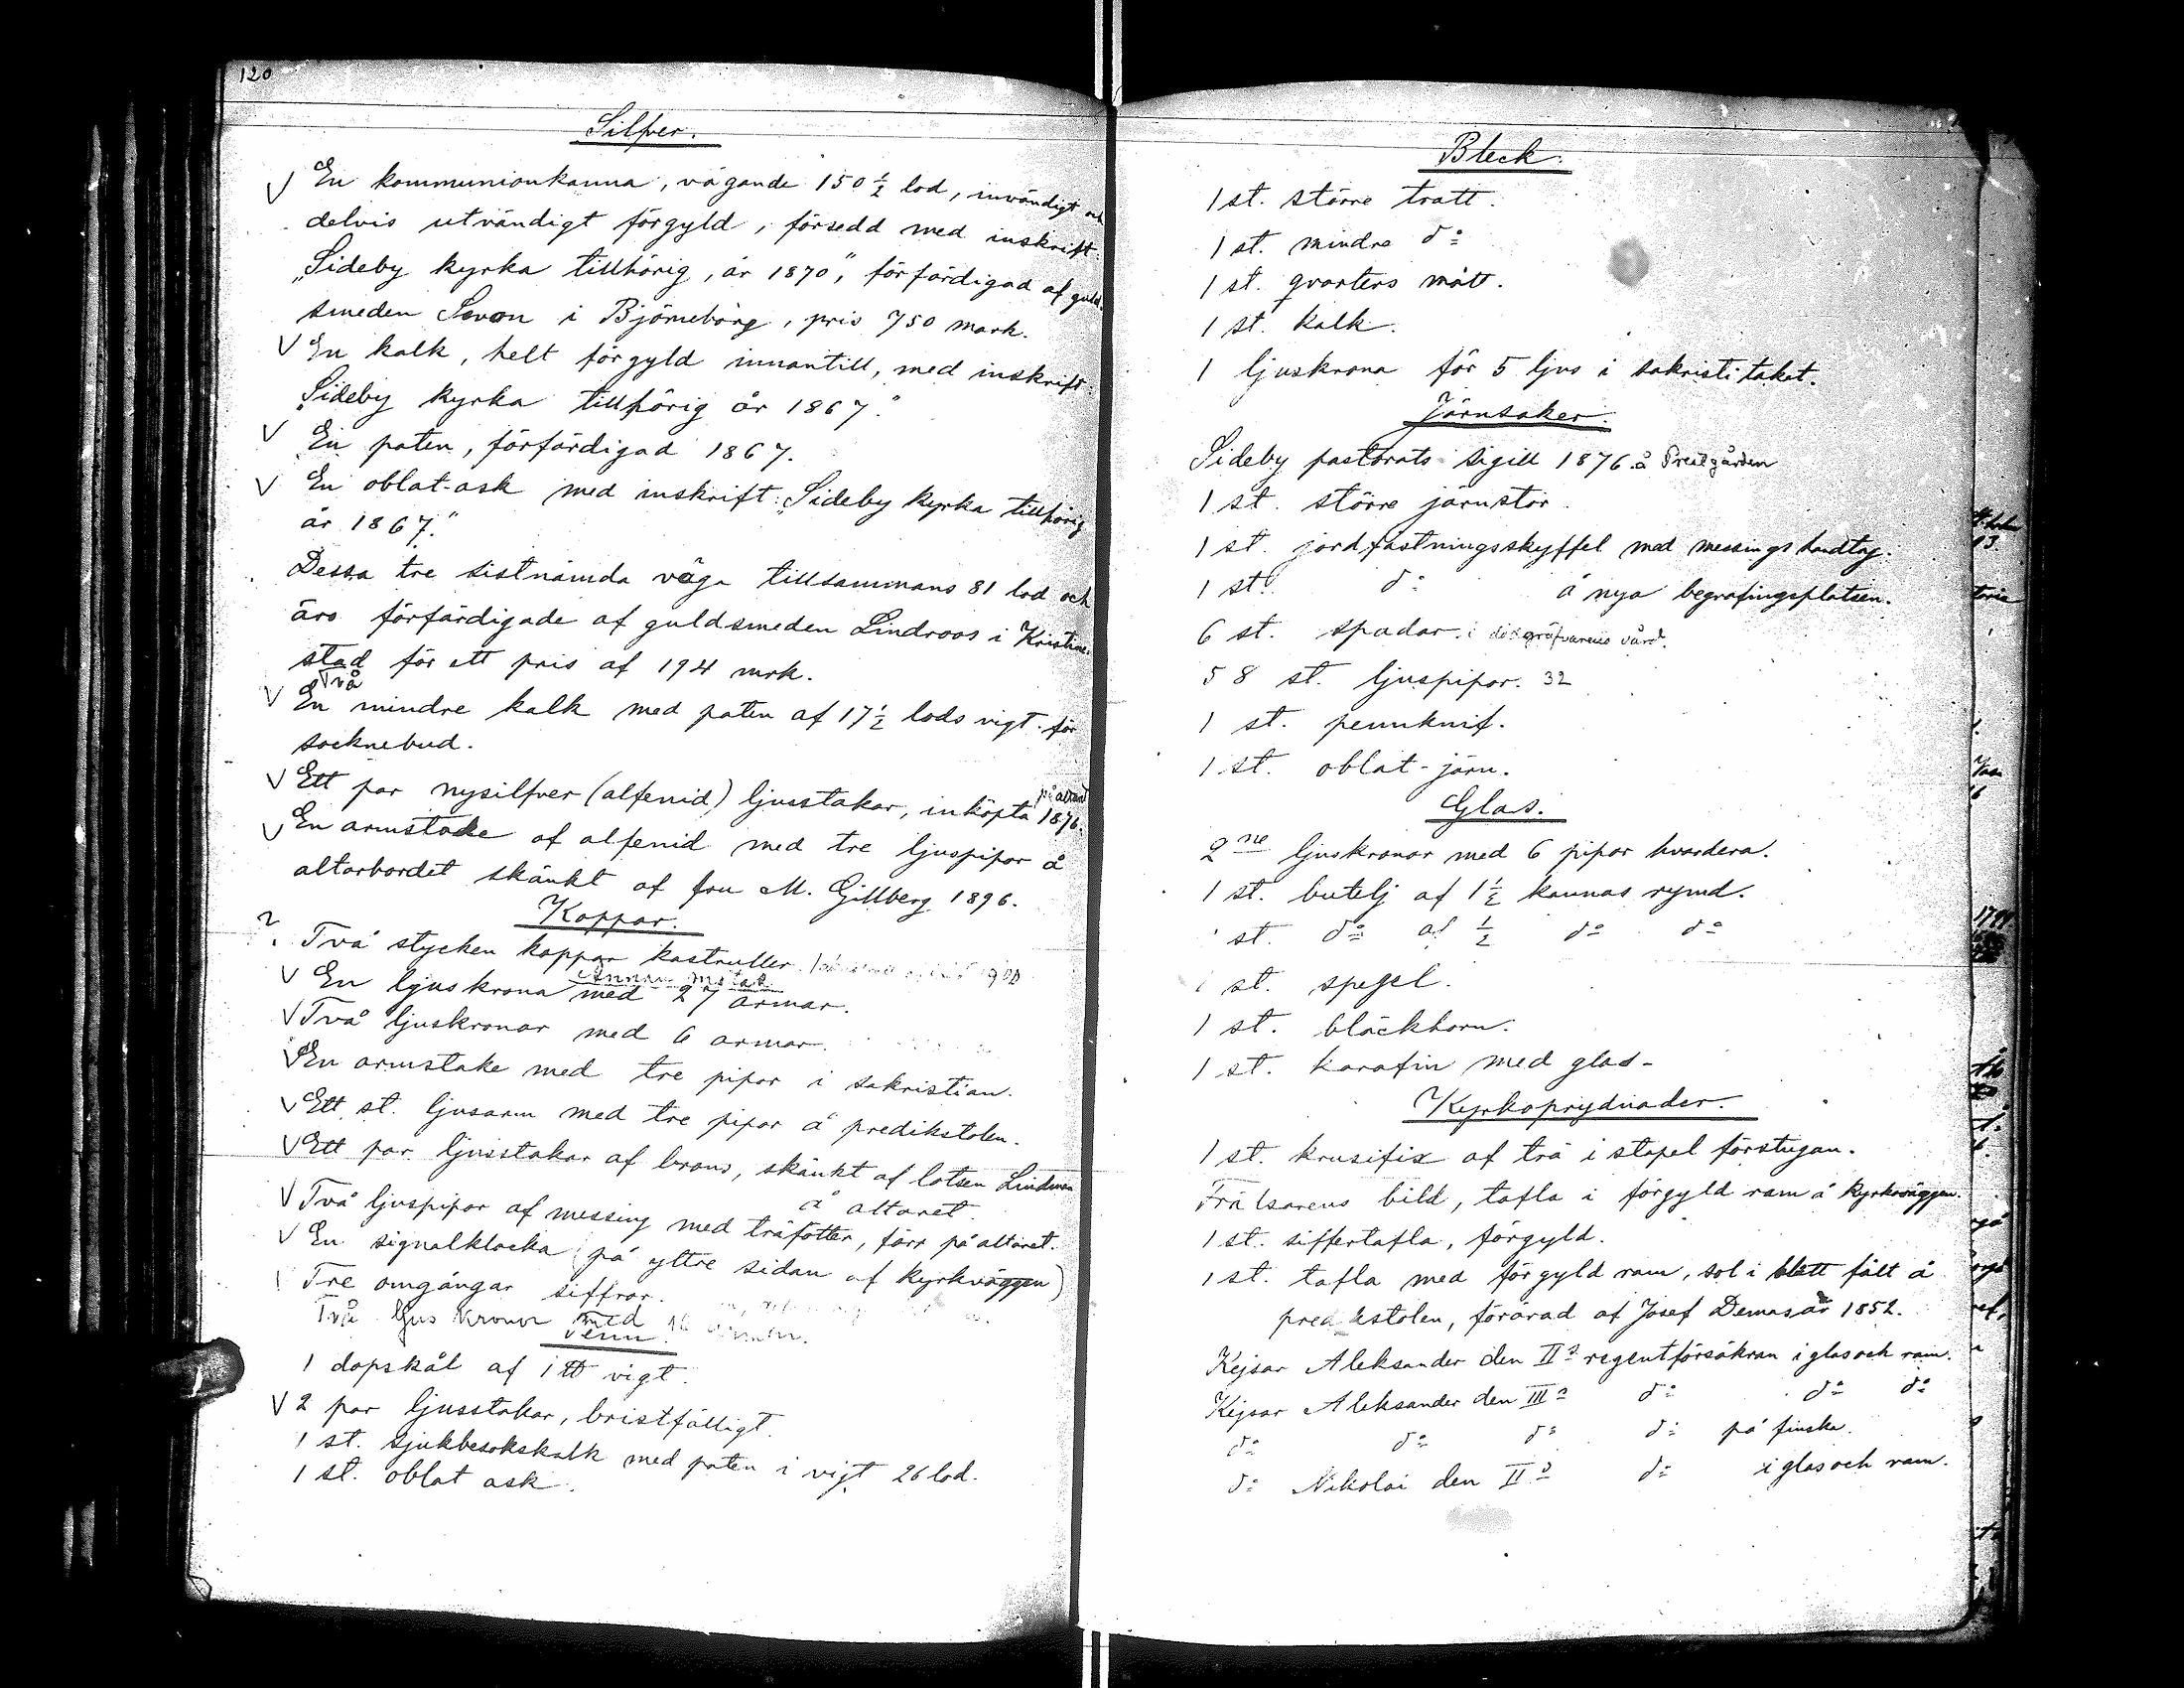 120
Silfver.
V En kommunionkanna, vägande 150 1/2 lod, invändigt och
delvis utvändigt förgyld, försedd med inskrift:
„Sideby kyrka tillhörig, år 1870", förfärdigad af guld-
smeden Sevon i Björneborg, pris 750 mark.
V En kalk, helt förgyld innantill, med inskrift:
„Sideby kyrka tillhörig år 1867."
V En paten, förfärdigad 1867.
V En oblat-ask med inskrift: „Sideby kyrka tillhörig
år 1867."
Dessa tre sistnämda väga tillsammans 81 lod och
äro förfärdigade af guldsmeden Lindroos i Kristine-
stad för ett pris af 194 mrk.
Två
V En mindre kalk med paten af 17 1/2 lods vigt för
socknebud.
på altaret
V Ett par nysilfver (alfenid) ljusstakar, inköpta 1876.
V En armstake af alfenid med tre ljuspipor å
altarbordet skänkt af fru M. Gillberg 1896.
Koppar.
? Två stycken koppar kastruller 1900
Annan metall
V En ljuskrona med 27 armar.
V Två ljuskronor med 6 armar.
V En armstake med tre pipor i sakristian.
V Ett st. ljusarm med tre pipor å predikstolen.
V Ett par ljusstakar af brons, skänkt af lotsen Lindman
å altaret.
V Två ljuspipor af messing med träfötter, förr på altaret.
V En signalklocka (på yttre sidan af kyrkväggen)
Tre omgångar siffror.
Två ljus kronor med 16 armar.
Tenn.
1 dopskål af 1 ℔ vigt.
V 2 par ljusstakar, bristfälligt.
1 st. sjukbesökskalk med paten i vigt 26 lod.
1 st. oblat ask.
Bleck.
1 st. större tratt.
1 st. mindre d:o
1 st. qvarters mått.
1 st. kalk.
1 ljuskrona för 5 ljus i sakristi taket.
Järnsaker.
Sideby pastorats sigill 1876 å Prestgården
1 st. större järnstör.
1 st. jordfästningsskyffel med messings handtag.
1 st. d:o å nya begrafningsplatsen.
6 st. spadar i dödgräfvarens vård.
58 st. ljuspipor. 32
1 st. pennknif.
1 st. oblat-järn.
Glas.
2ne ljuskronor med 6 pipor hvardera.
1 st. butelj af 1 1/2 kannas rymd.
1 st. d:o af 1/2 d:o d:o
1 st. spegel.
1 st. bläckhorn.
1 st. karafin med glas-
Kyrkoprydnader.
1 st. krusifix af trä i stapel förstugan.
Frälsarens bild, tafla i förgyld ram å kyrkoväggen.
1 st. siffertafla, förgyld.
1 st. tafla med förgyld ram, sol i blått fält å
predikstolen, förärad af Josef Demas år 1852.
Kejsar Aleksander den II:s regentförsäkran i glas och ram.
Kejsar Aleksander den III:s d:o d:o d:o
d:o d:o d:o d:o på finska.
d:o Nikolai den II:s d:o i glas och ram.